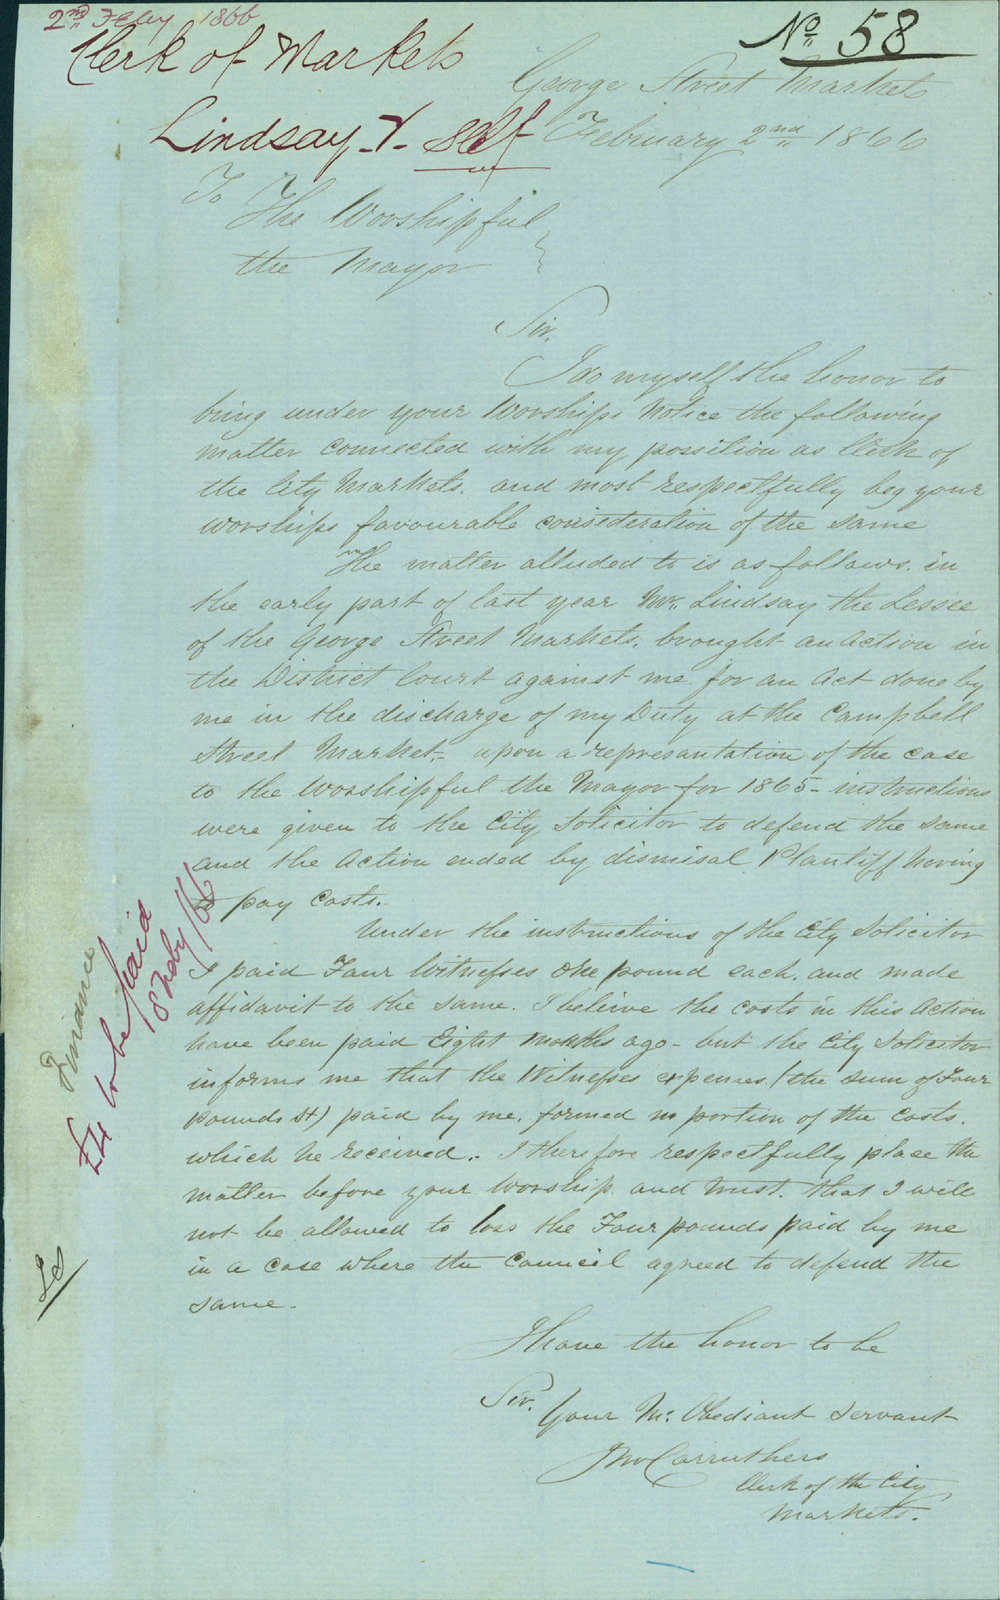 2nd Feby 1866
No 58
Clerk of Markets
George Street Markets
Lindsay v. Self
February 2nd 1866
To
The Worshipful
the Mayor
Sir,
I do myself the honor to
bring under your Worships Notice the following
matter connected with my possition as Clerk of
the City Markets. and most respectfully beg your
worships favourable consideration of the same
The matter alluded to is as follows. in
the early part of last year Mr. Lindsay the Lessee
of the George Street Markets. brought an Action in
the District Court against me for an Act done by
me in the discharge of my Duty at the Campbell
Street Market,- upon a represantation of the case
to the Worshipful the Mayor for 1865 - instructions
were given to the City Solicitor to defend the same
and the Action ended by dismisal Plantiff having
to pay Costs.
Under the instructions of the City Solicitor
I paid Four Witnesses One pound each. and made
affidavit to the same. I beleive the Costs in this Action
have been paid Eight Months ago - but the City Solicitor
informs me that the Witnesses expenses. (the sum of Four
pounds St) paid by me. formed no portion of the Costs.
which he received. I therefore respectfully place the
matter before your Worship and trust. that I will
not be allowed to loss the Four pounds paid by me
in a Case where the Council agreed to defend the
same.
I have the honor to be
Sir.
Your Mt. Obediant Servant
Jno Carruthers
Clerk of the City
Markets.
Finance
£4 to be paid
8 Feby /66